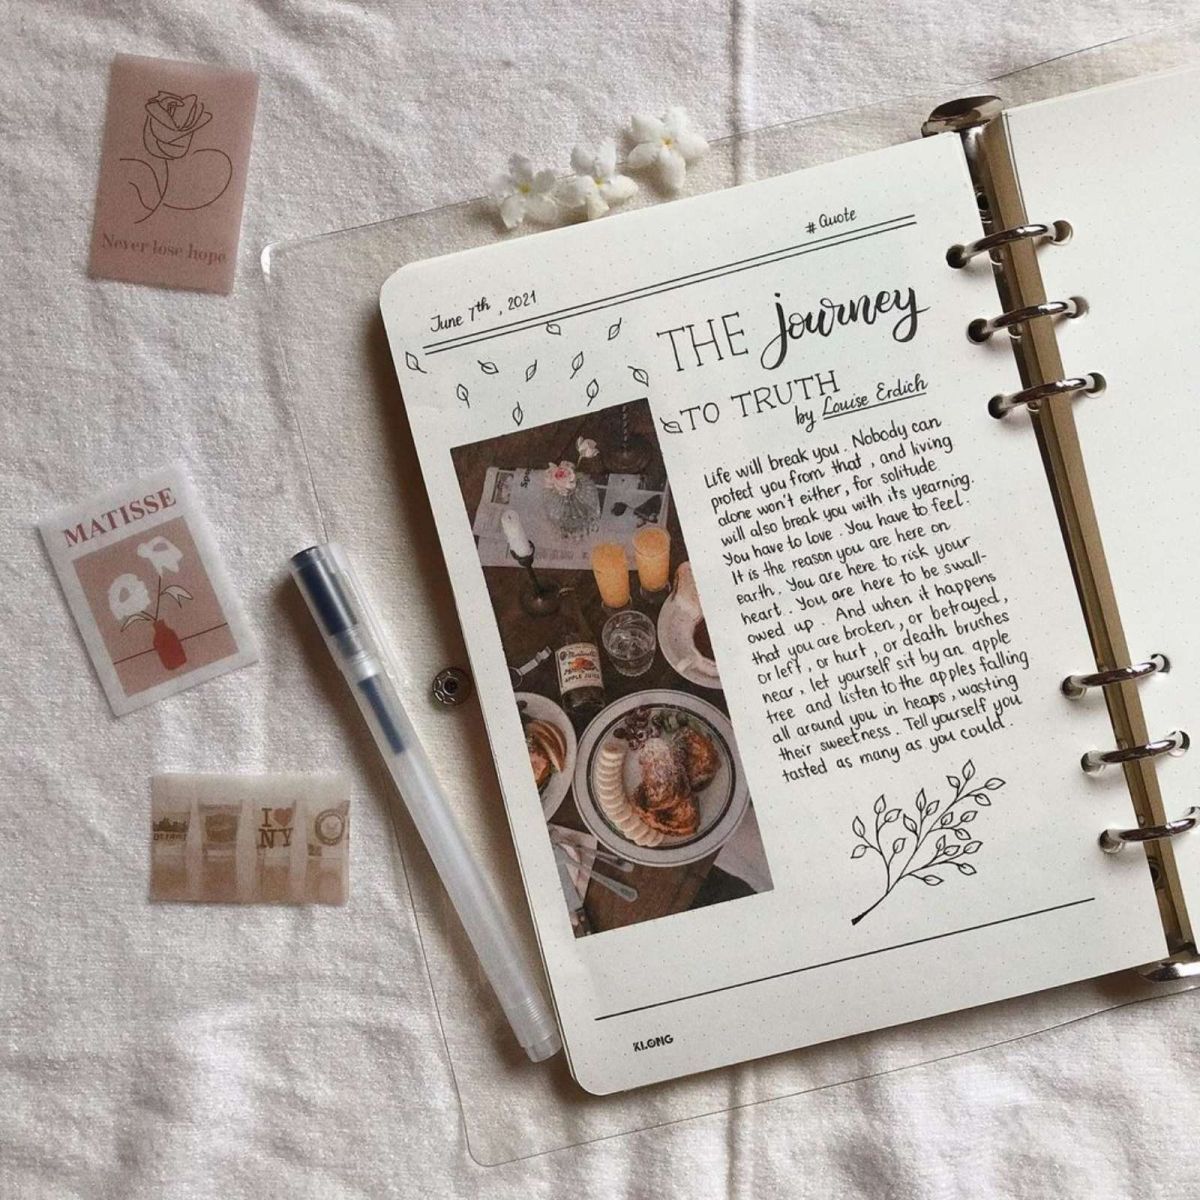 Never lose hope
MATISSE
I ♥
NY
# Quote
June 7th, 2021
THE journey
TO TRUTH
by Louise Erdich
Life will break you. Nobody can
protect you from that, and living
alone won't either, for solitude
will also break you with its yearning.
You have to love. You have to feel.
It is the reason you are here on
earth. You are here to risk your
heart. You are here to be swall-
owed up. And when it happens
that you are broken, or betrayed,
or left, or hurt, or death brushes
near, let yourself sit by an apple
tree and listen to the apples falling
all around you in heaps, wasting
their sweetness. Tell yourself you
tasted as many as you could.
APPLE JUICE
KLONG